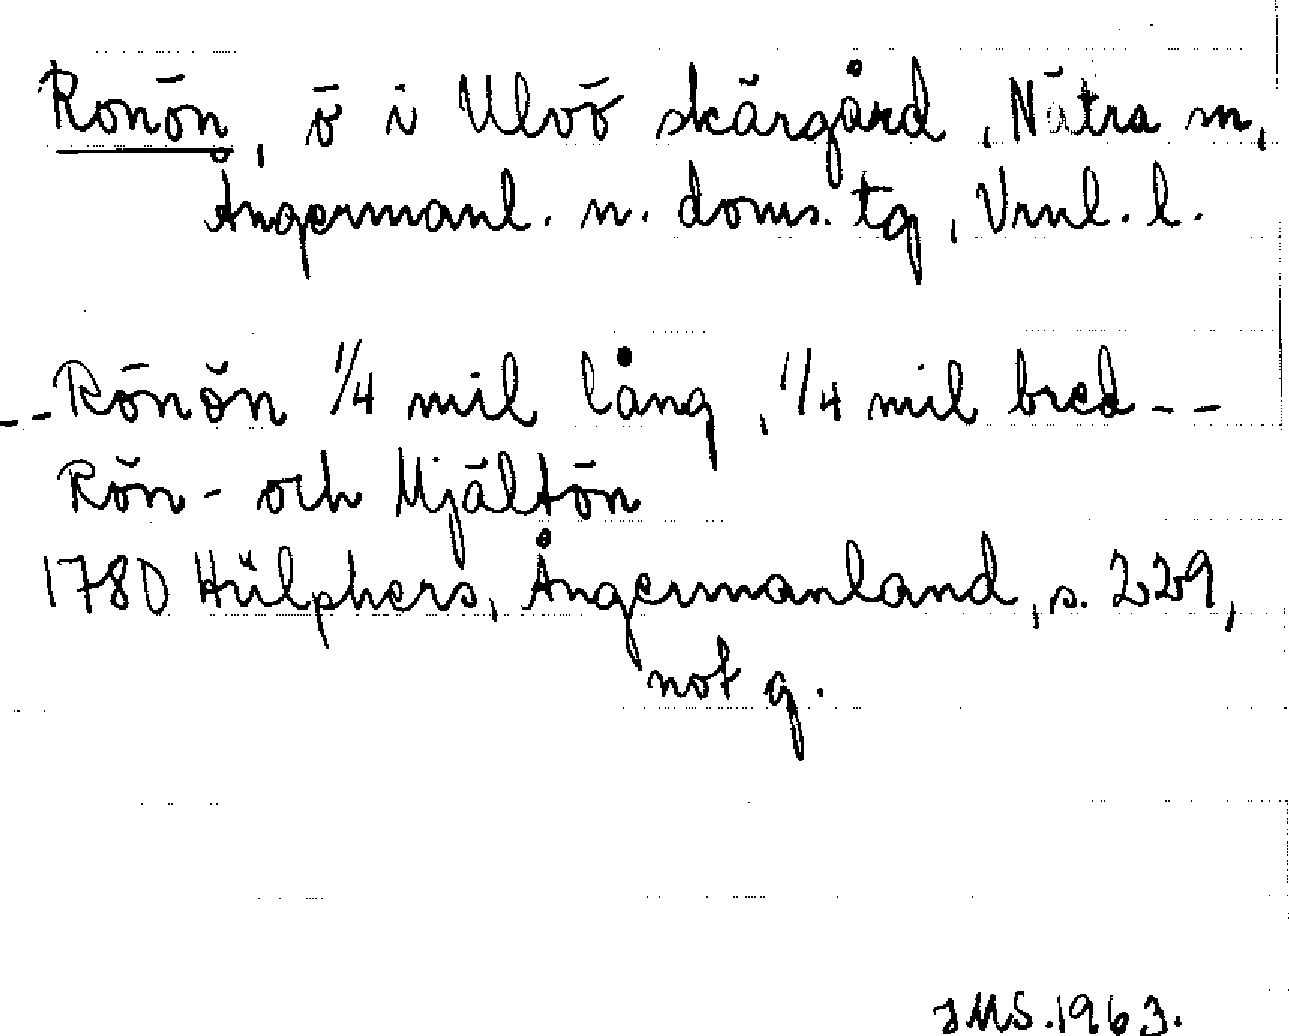 Ronön, ö i Ulvö skärgård, Nätra sn,
Ångermanl. n. doms. tg, Vrnl. l.
-- Rönön 1/4 mil lång, 1/4 mil bred --
Rön- och Mjältön
1780 Hülphers, Ångermanland, s. 229,
not q.
JMS. 1963.